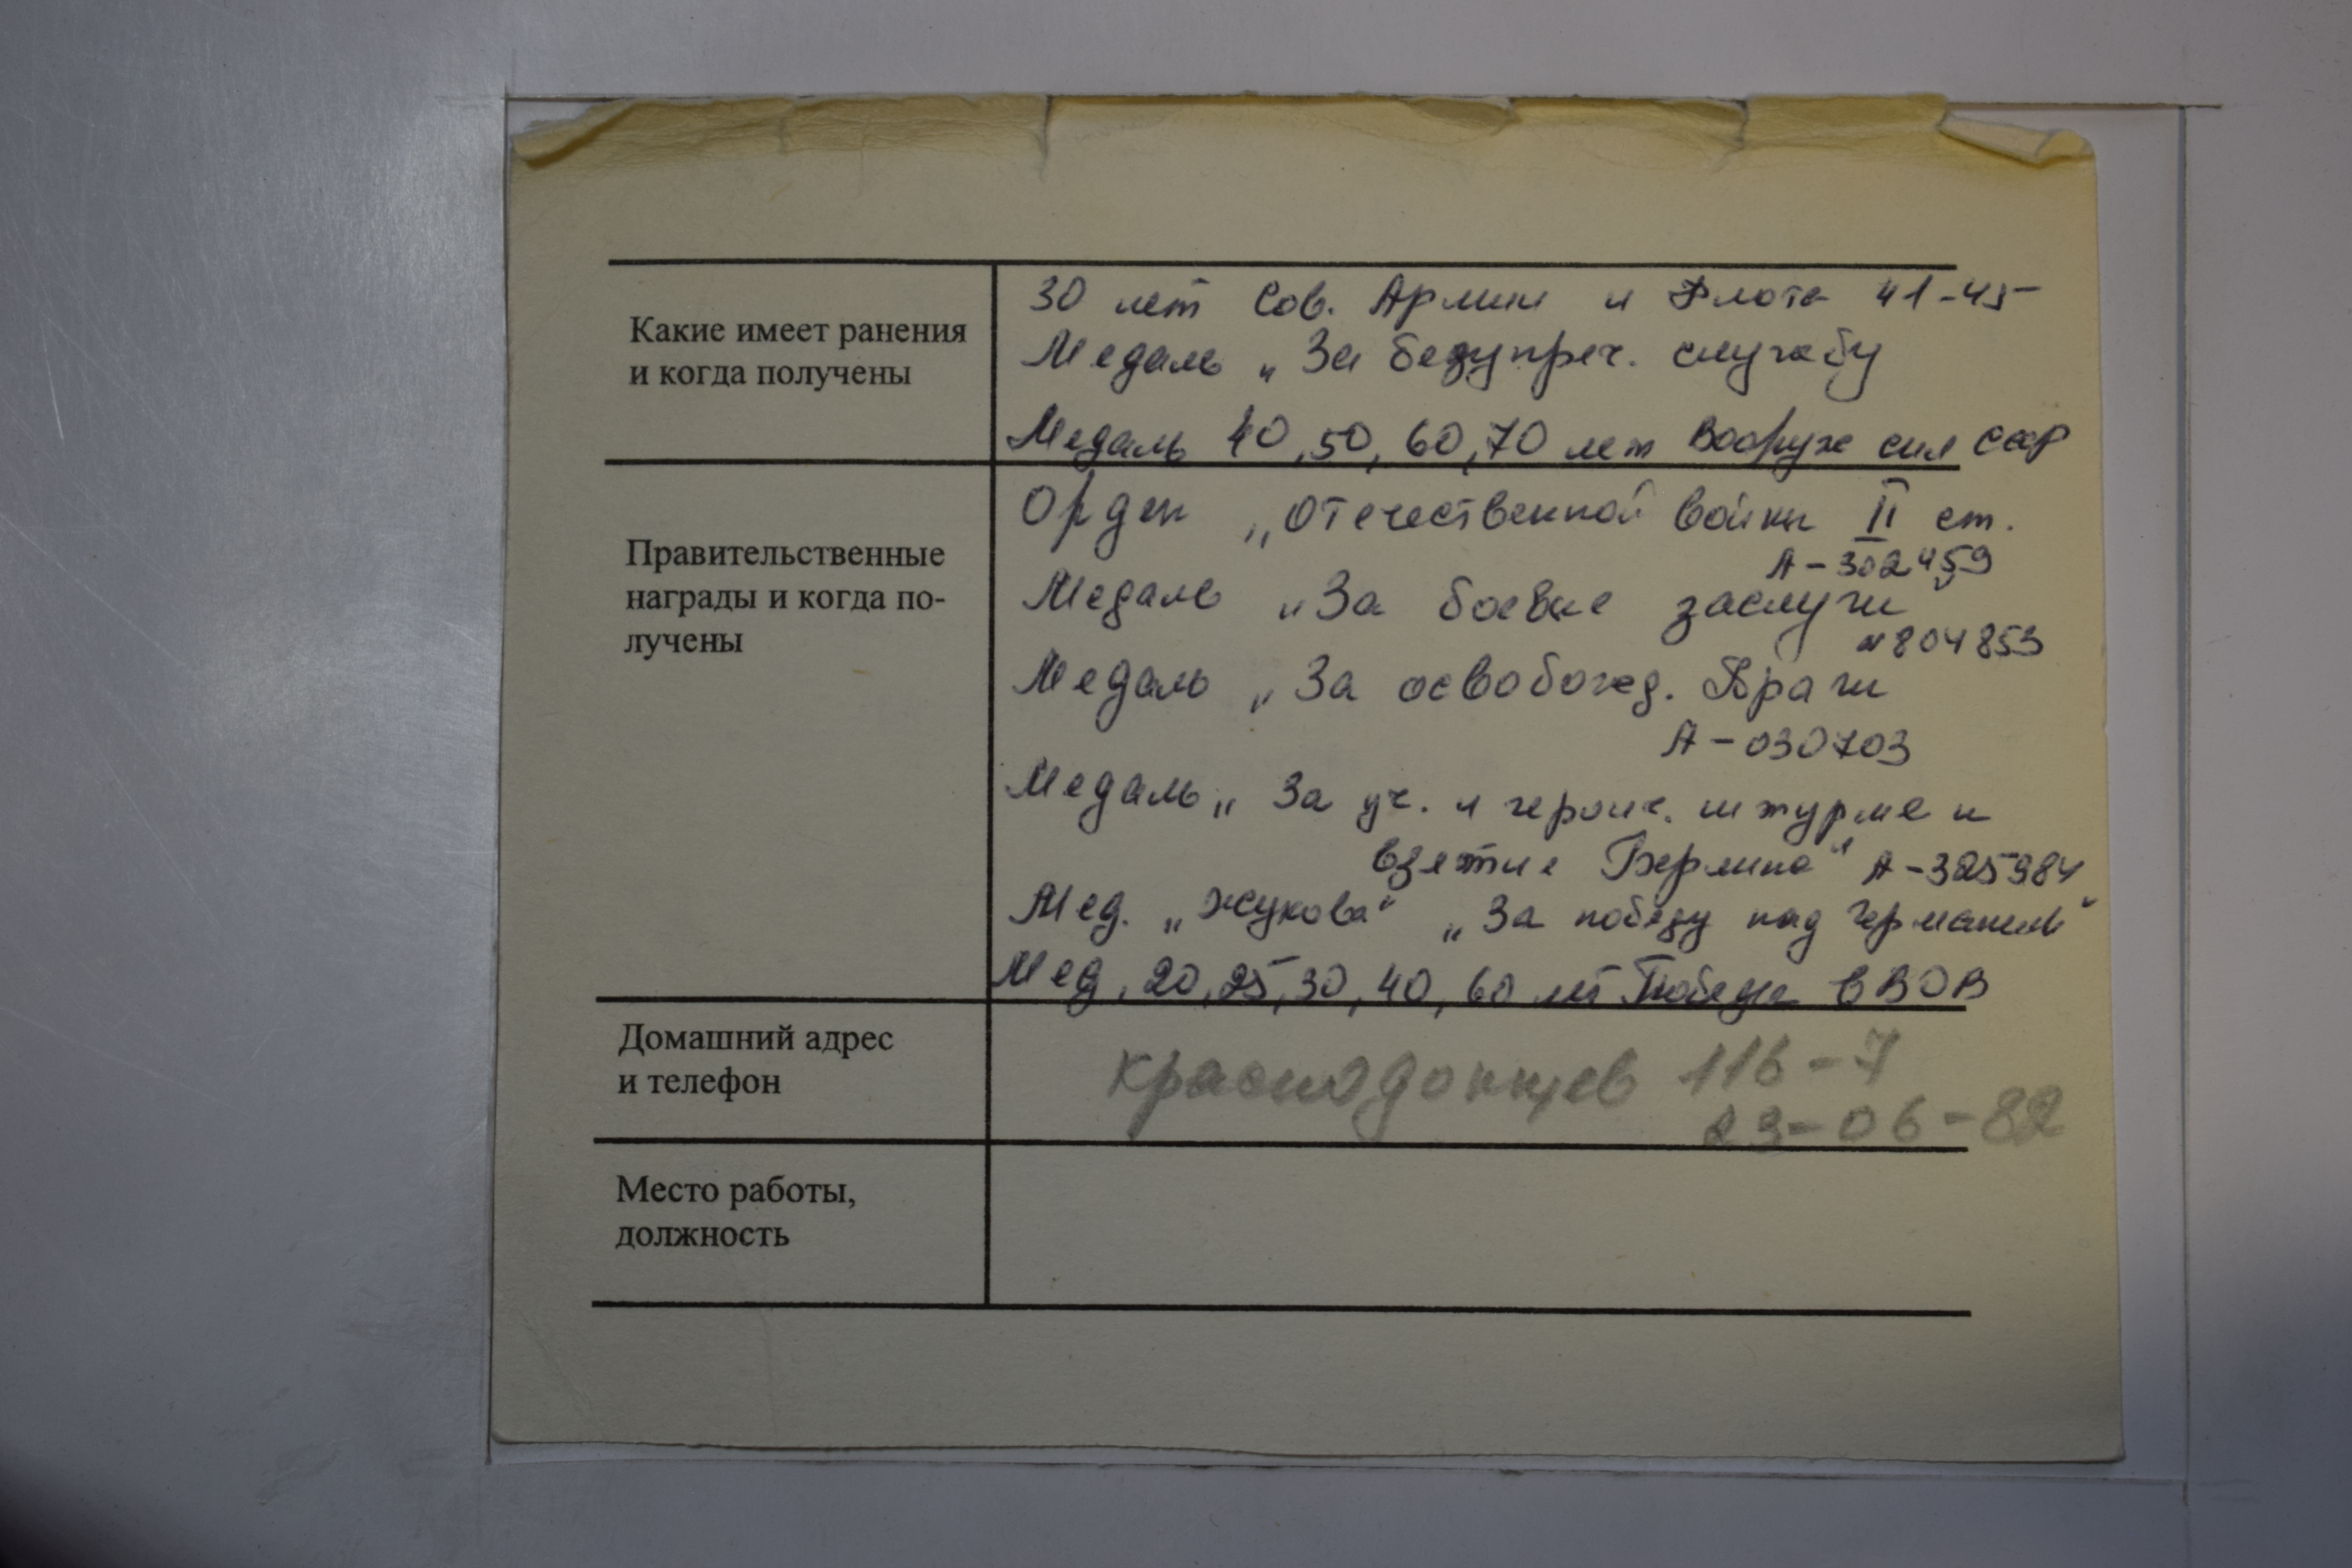 Какие имеет ранения
и когда получены
30 лет Сов. Армии и Флота 41-45
Медаль „За безупреч. службу
Медаль 40, 50, 60, 70 лет Вооруж сил СССР
Правительственные
награды и когда по-
лучены
Орден „Отечественной войны II ст.
А-302459
Медаль „За боевые заслуги
№804853
Медаль „За освобожд. Праги
А-030703
Медаль „За уч. и героич. штурме и
взятие Берлина" А-325984
Мед. „Жукова" „За победу над Германией"
Мед, 20, 25, 30, 40, 60 лет Победы в ВОВ
Домашний адрес
и телефон
Краснодонцев 116-7
23-06-82
Место работы,
должность